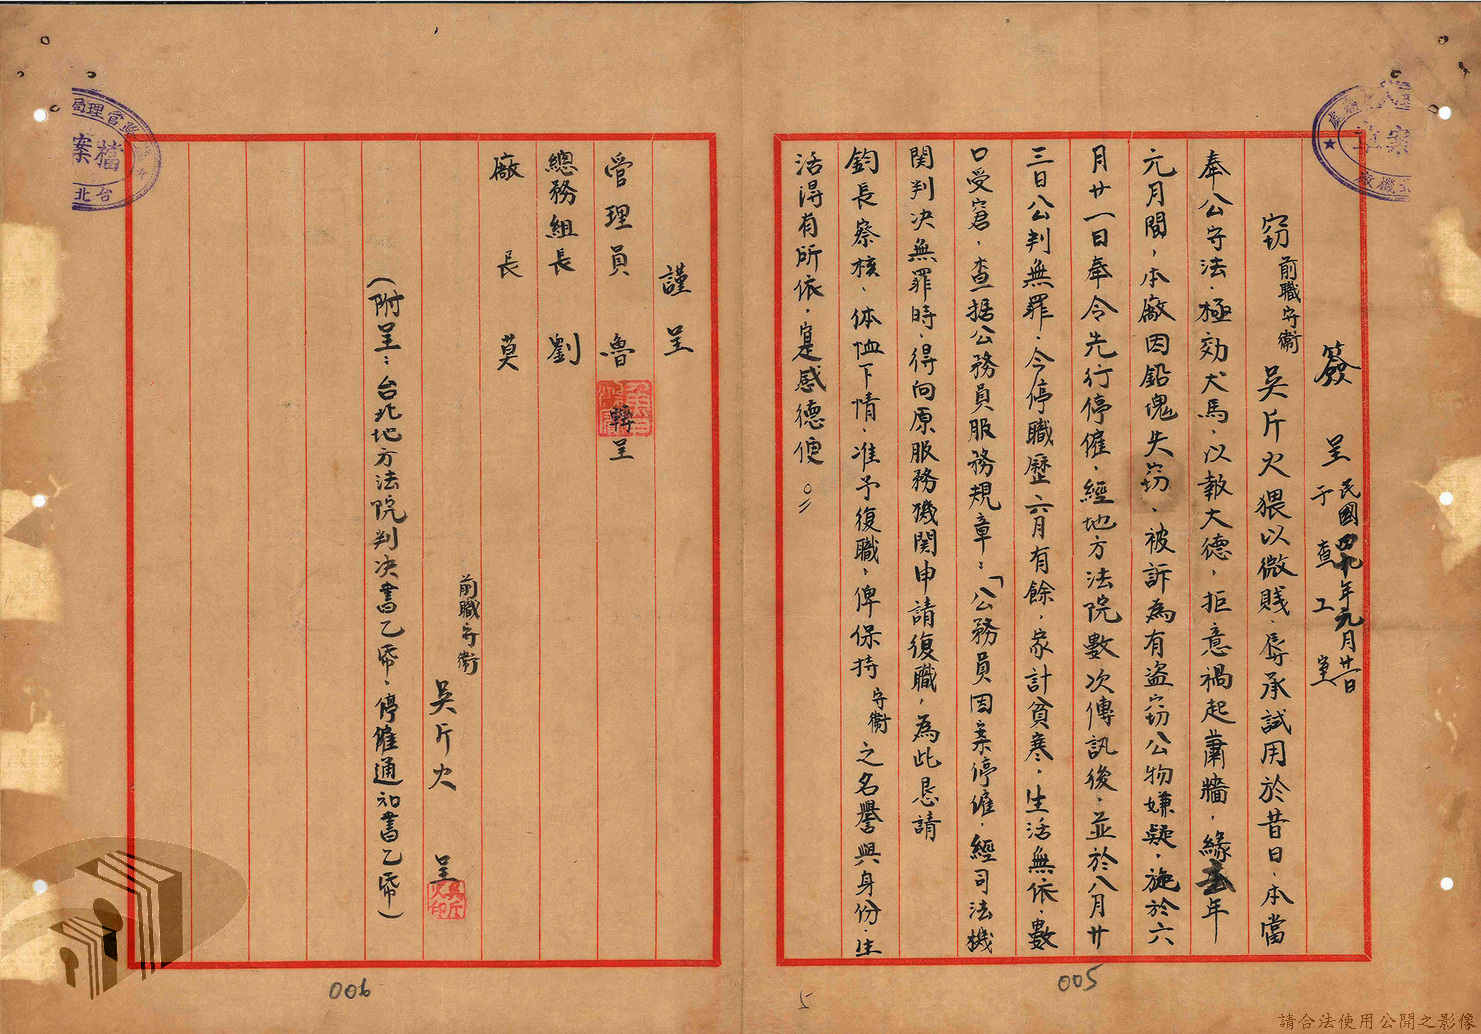 簽 呈 民國四十年元月廿一日
于 查工室
竊前職守衛吳斤火猥以微賤、辱承試用於昔日、本當
奉公守法、極効犬馬、以報大德、拒意禍起蕭牆、緣去年
元月間、本廠因鉛塊失窃、被訴為有盜窃公物嫌疑、施於六
月廿一日奉令先行停雇、經地方法院數次傳訊後、並於八月廿
三日公判無罪、今停職歷六月有餘、家計貧寒、生活無依、數
口受窘、查据公務員服務規章：「公務員因案停雇、經司法機
関判决無罪時、得向原服務機関申請復職、為此恳請
鈞長察核、体恤下情、准予復職、俾保持守衛之名譽與身份、生
活得有所依、寔感德便。
謹呈
管理員 魯 轉呈
總務組長 劉
廠長 莫
前職守衛 吳斤火 呈
(附呈：台北地方法院判决書乙帋、停雇通知書乙帋)
005
006
5
檔案
台北
請合法使用公開之影像